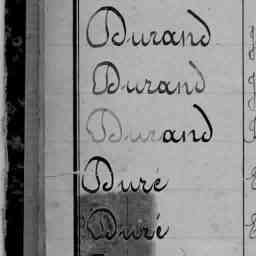 Durand
Durand
Durand
Duré
Duré